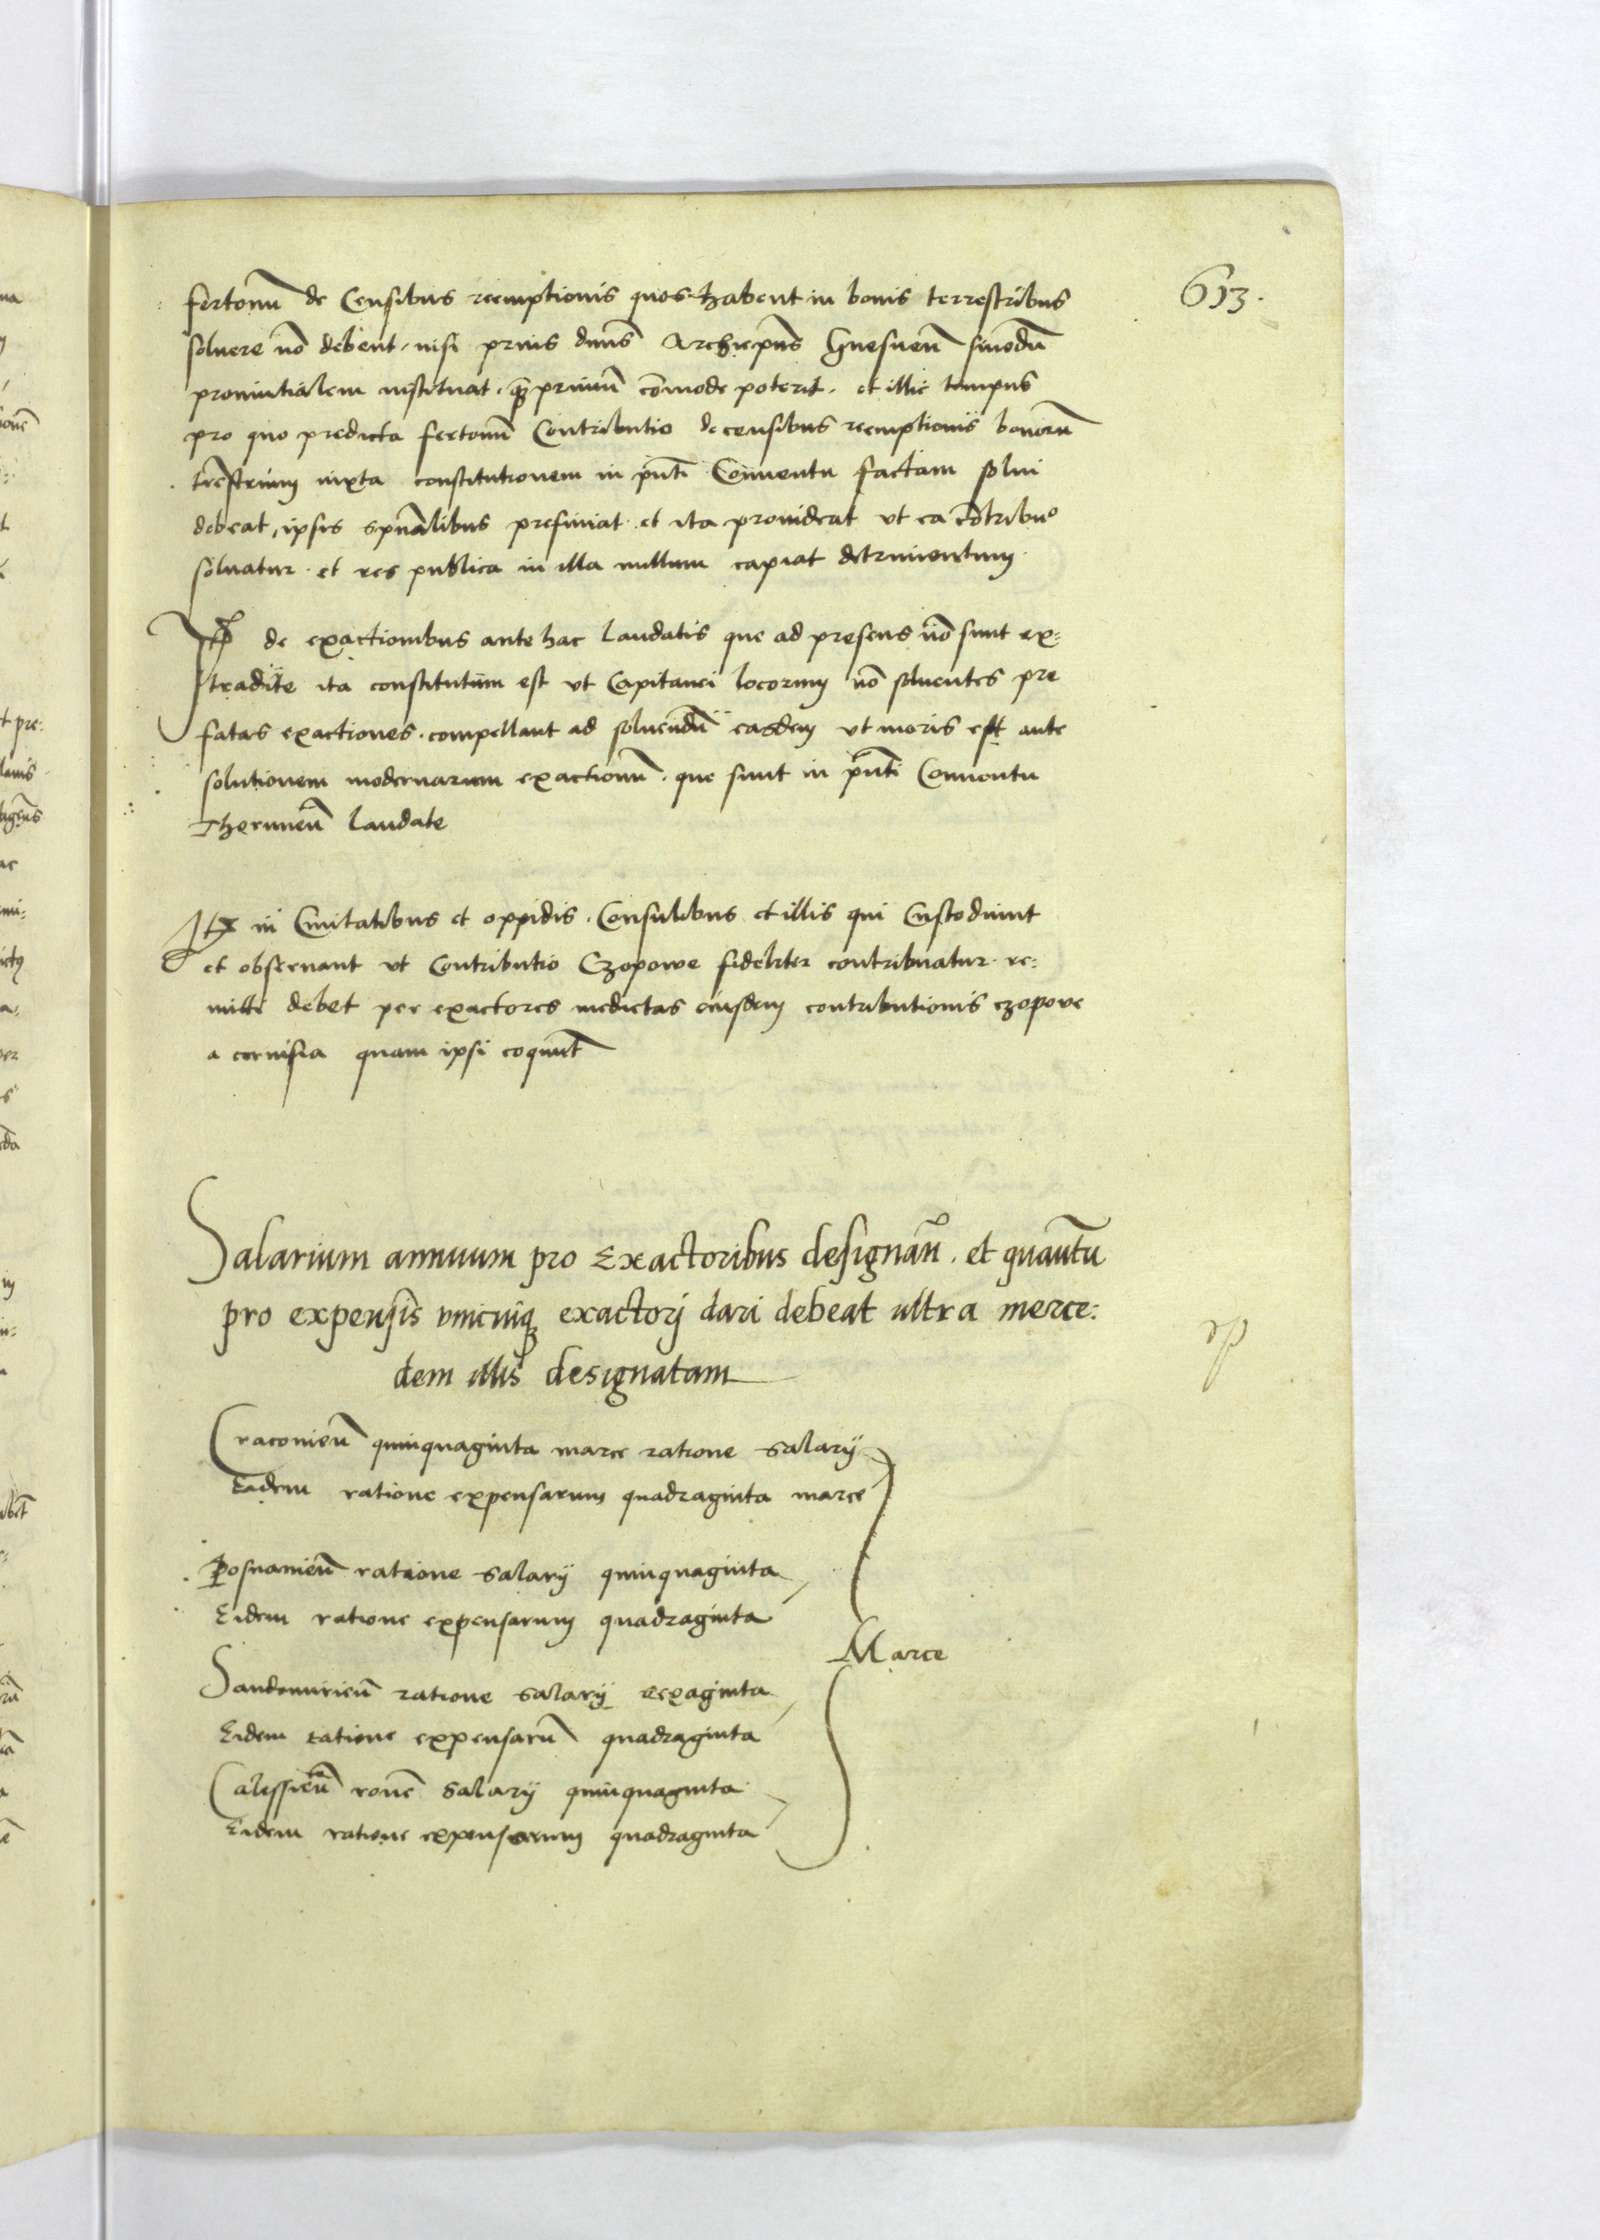 613.
fertonū de Censibus reemptionis quos habent in bonis terrestribus
soluere nō debent, nisi prius dnūs Archiepūs Gnesneñ sinodū
prouintialem instituat, q̄primū cōmode poterit. et illic tempus
pro quo predicta fertonū Contributio de censibus reemptionis bonorū
trēstrium iuxta constitutionem in pñti Conuentu factam solui
debeat, ipsis spūalibus prefiniat. et ita prouideat vt ea cōtribuᵒ
soluatur. et res publica in illa nullum capiat detrimentum.
Itē de exactionibus ante hac laudatis que ad presens nō sunt ex:
tradite ita constitutum est vt Capitanei locorum nō soluentes pre
fatas exactiones. compellant ad soluendū easdem vt moris est ante
solutionem modernarum exactionū. que sunt in pñti Conuentu
Thoruneñ laudate
Itē in Ciuitatibus et oppidis. Consulibus et illis qui Custodiunt
et obseruant vt Contributio Czopowe fideliter contribuatur. re:
mitti debet per exactores medietas eiusdem contributionis czopowe
a ceruisia quam ipsi coquūt
Salarium annuum pro Exactoribus designañ. et quantū
pro expensis vnicuiq̨ exactorj dari debeat ultra merce:
dem illis designatam
Cracouieñ quinquaginta marce ratione salarij
Eidem ratione expensarum quadraginta marce
Posnanieñ ratione salarij quinquaginta
Eidem ratione expensarum quadraginta
Marce
Sandomirieñ ratione salarij sexaginta
Eidem ratione expensarū quadraginta
Calissieñ rone salarij quinquaginta
Eidem ratione expensarum quadraginta